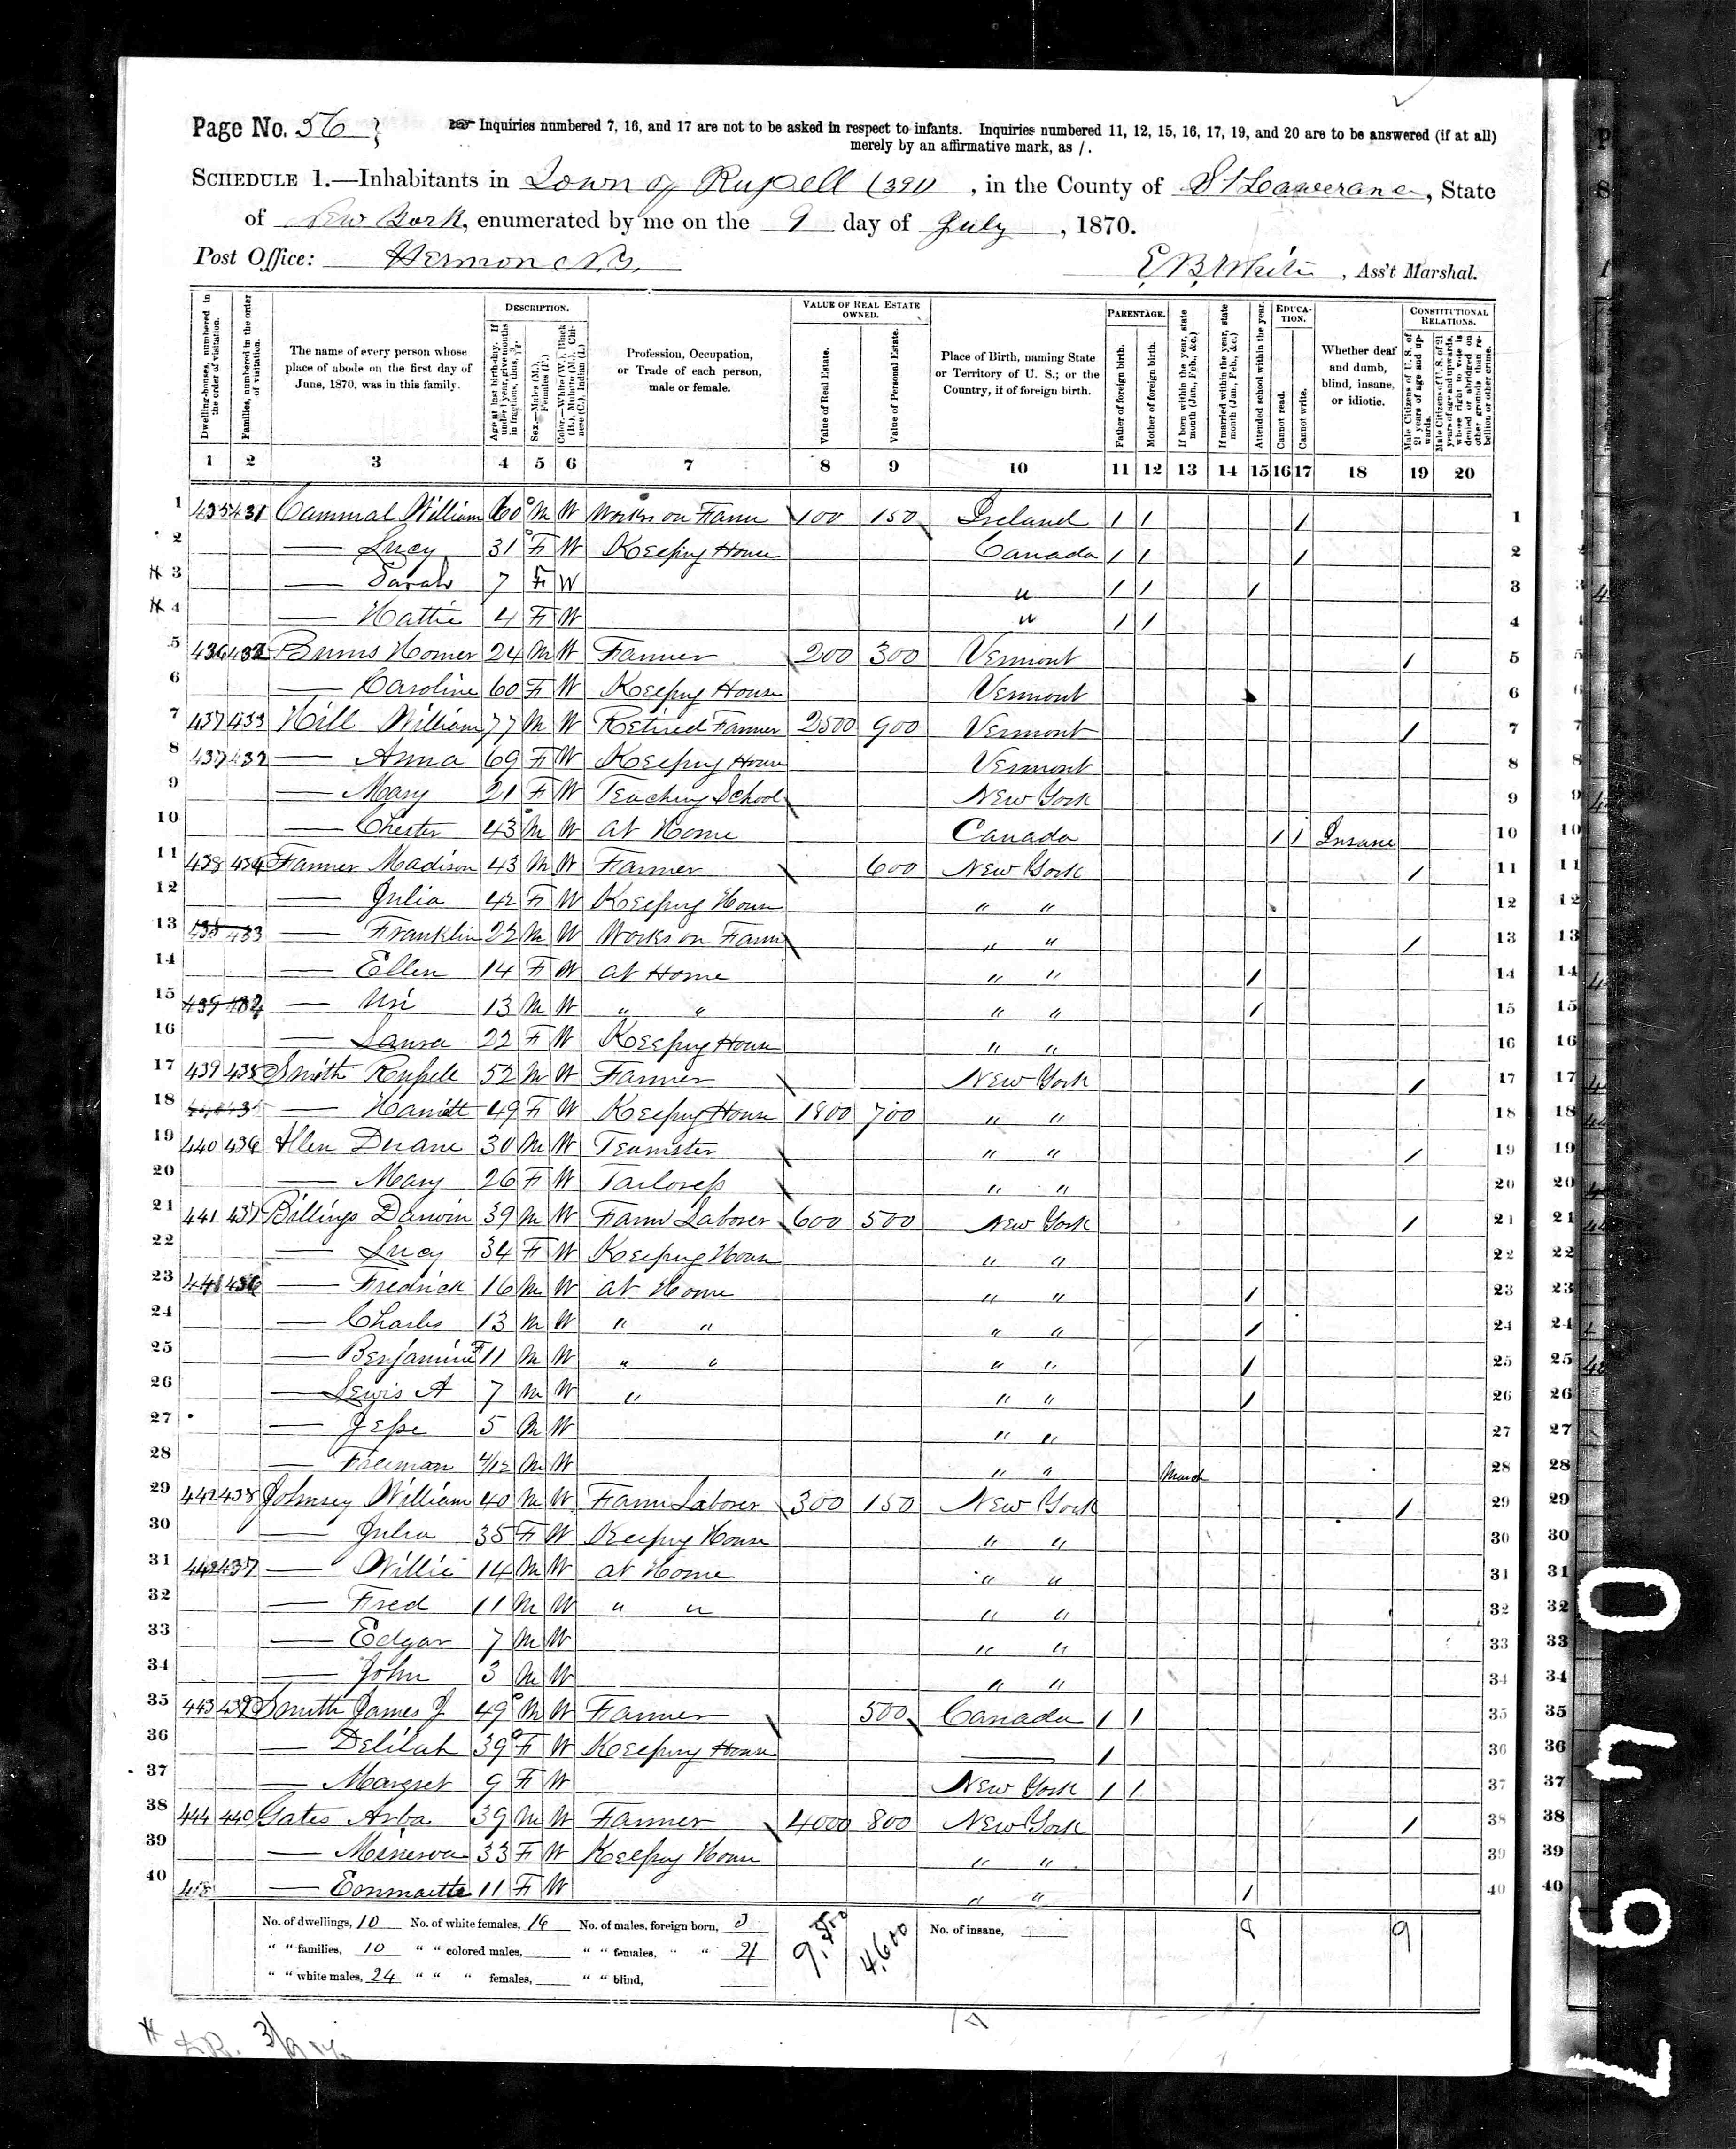 Page No. 56
Inquiries numbered 7, 16, and 17 are not to be asked in respect to infants. Inquiries numbered 11, 12, 15, 16, 17, 19, and 20 are to be answered (if at all)
merely by an affirmative mark, as /.
SCHEDULE 1.—Inhabitants in Town of Russell (391), in the County of St Lawerance, State
of New York, enumerated by me on the 9 day of July, 1870.
Post Office: Hermon N.Y.
E B White, Ass't Marshal.
DESCRIPTION. VALUE OF REAL ESTATE OWNED. PARENTAGE. EDUCATION. CONSTITUTIONAL RELATIONS.
Dwelling-houses, numbered in the order of visitation.
Families, numbered in the order of visitation.
The name of every person whose place of abode on the first day of June, 1870, was in this family.
Age at last birth-day. If under 1 year, give months in fractions, thus, 3/12.
Sex.—Males (M.), Females (F.)
Color.—White (W.), Black (B.), Mulatto (M.), Chinese (C.), Indian (I.)
Profession, Occupation, or Trade of each person, male or female.
Value of Real Estate.
Value of Personal Estate.
Place of Birth, naming State or Territory of U. S.; or the Country, if of foreign birth.
Father of foreign birth.
Mother of foreign birth.
If born within the year, state month (Jan., Feb., &c.)
If married within the year, state month (Jan., Feb., &c.)
Attended school within the year.
Cannot read.
Cannot write.
Whether deaf and dumb, blind, insane, or idiotic.
Male Citizens of U. S. of 21 years of age and upwards.
Male Citizens of U. S. of 21 years of age and upwards, whose right to vote is denied or abridged on other grounds than rebellion or other crime.
1 2 3 4 5 6 7 8 9 10 11 12 13 14 15 16 17 18 19 20
1 435 431 Cammal William 60 M W Works on Farm 100 150 Ireland / / / 1
2 — Lucy 31 F W Keeping House Canada / / / 2
3 — Sarah 7 F W " / / / 3
4 — Hattie 4 F W " / / 4
5 436 432 Burns Homer 24 M W Farmer 200 300 Vermont / 5
6 — Caroline 60 F W Keeping House Vermont 6
7 437 433 Hill William 77 M W Retired Farmer 2500 900 Vermont / 7
8 — Anna 69 F W Keeping House Vermont 8
9 — Mary 21 F W Teaching School New York 9
10 — Chester 43 M W at Home Canada / / Insane 10
11 438 434 Farmer Madison 43 M W Farmer 600 New York / 11
12 — Julia 42 F W Keeping House " " 12
13 — Franklin 22 M W Works on Farm " " / 13
14 — Ellen 14 F W at Home " " / 14
15 — Uri 13 M W " " " " / 15
16 — Laura 22 F W Keeping House " " 16
17 439 435 Smith Russell 52 M W Farmer New York / 17
18 — Harriett 49 F W Keeping House 1800 700 " " 18
19 440 436 Allen Duane 30 M W Teamster " " / 19
20 — Mary 26 F W Tailoress " " 20
21 441 437 Billings Darwin 39 M W Farm Laborer 600 500 New York / 21
22 — Lucy 34 F W Keeping House " " 22
23 — Fredrick 16 M W at Home " " / 23
24 — Charles 13 M W " " " " / 24
25 — Benjamin F 11 M W " " " " / 25
26 — Lewis A 7 M W " " " / 26
27 — Jesse 5 M W " " 27
28 — Freeman 4/12 M W " " March 28
29 442 438 Johnsey William 40 M W Farm Laborer 300 150 New York / 29
30 — Julia 35 F W Keeping House " " 30
31 — Willie 14 M W at Home " " 31
32 — Fred 11 M W " " " " 32
33 — Edgar 7 M W " " 33
34 — John 3 M W " " 34
35 443 439 Smith James J 49 M W Farmer 500 Canada / / 35
36 — Delilah 39 F W Keeping House — / 36
37 — Margret 9 F W New York / / 37
38 444 440 Gates Arba 39 M W Farmer 4000 800 New York / 38
39 — Minerva 33 F W Keeping House " " 39
40 — Emmaette 11 F W " " / 40
No. of dwellings, 10 No. of white females, 16 No. of males, foreign born, 3 No. of insane,
" " families, 10 " " colored males, " " females, " "
" " white males, 24 " " " females, " " blind,
4,600
9